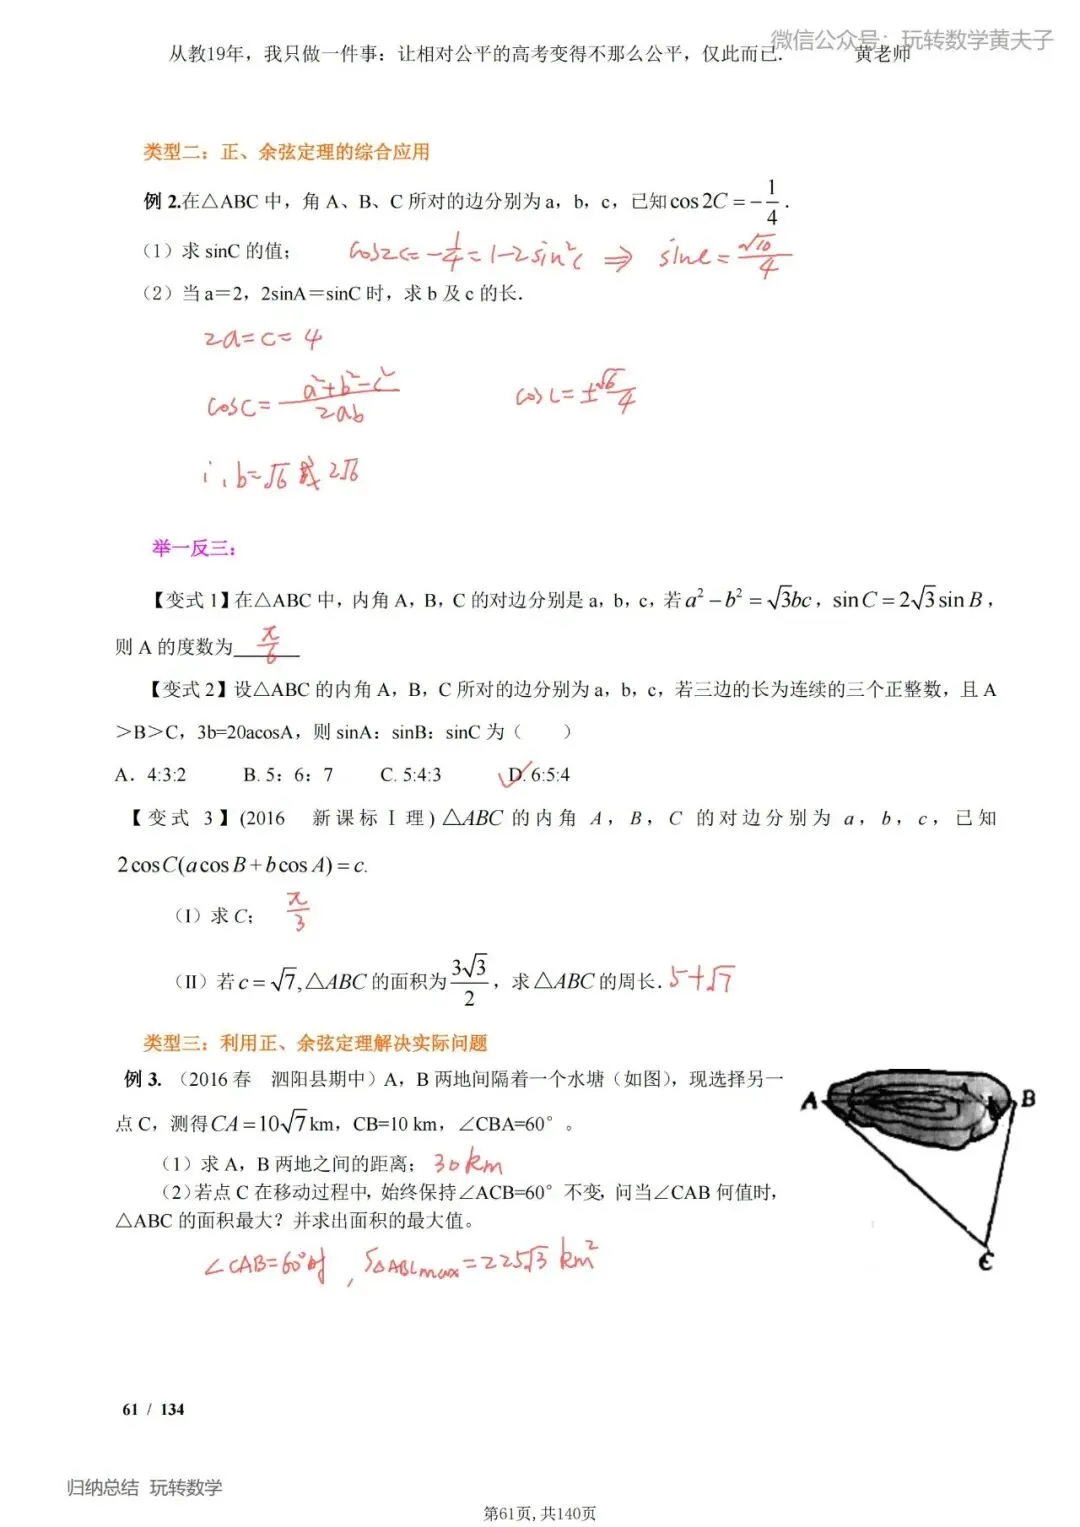 微信公众号：玩转数学黄夫子
从教19年，我只做一件事：让相对公平的高考变得不那么公平，仅此而已. 黄老师
类型二：正、余弦定理的综合应用
例 2.在△ABC 中，角 A、B、C 所对的边分别为 a，b，c，已知 cos 2C = −1/4 .
（1）求 sinC 的值； cos2C = −1/4 = 1−2sin²C ⇒ sinC = √10/4
（2）当 a＝2，2sinA＝sinC 时，求 b 及 c 的长．
2a=c=4
cosC= (a²+b²−c²)/2ab cosC=±√6/4
∴b=√6 或 2√6
举一反三：
【变式 1】在△ABC 中，内角 A，B，C 的对边分别是 a，b，c，若 a² − b² = √3bc，sin C = 2√3 sin B，
则 A 的度数为 π/6
【变式 2】设△ABC 的内角 A，B，C 所对的边分别为 a，b，c，若三边的长为连续的三个正整数，且 A
＞B＞C，3b=20acosA，则 sinA：sinB：sinC 为（ ）
A．4:3:2 B. 5：6：7 C. 5:4:3 D. 6:5:4
【变式 3】(2016 新课标 I 理) △ABC 的内角 A，B，C 的对边分别为 a，b，c，已知
2cos C(a cos B + b cos A) = c.
（I）求 C； π/3
（II）若 c = √7, △ABC 的面积为 3√3/2，求 △ABC 的周长． 5+√7
类型三：利用正、余弦定理解决实际问题
例 3. （2016 春 泗阳县期中）A，B 两地间隔着一个水塘（如图），现选择另一
点 C，测得 CA = 10√7 km，CB=10 km，∠CBA=60°。
（1）求 A，B 两地之间的距离； 30km
（2）若点 C 在移动过程中，始终保持∠ACB=60°不变，问当∠CAB 何值时，
△ABC 的面积最大？并求出面积的最大值。
∠CAB=60°时，S△ABCmax=225√3 km²
A B
C
61 / 134
归纳总结 玩转数学
第61页,共140页